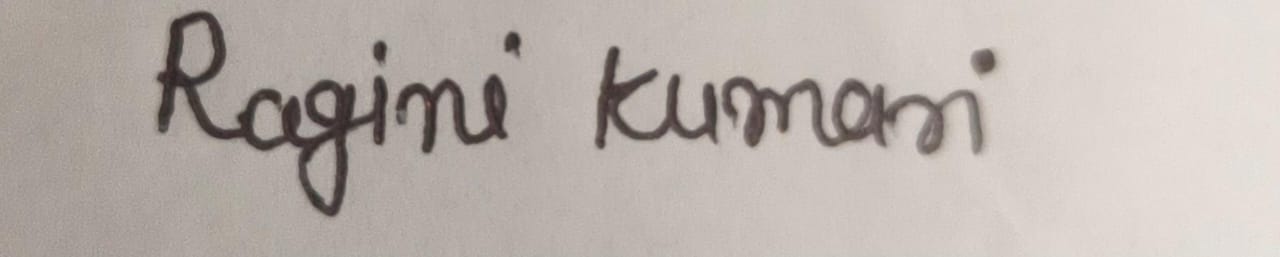 Ragini Kumari